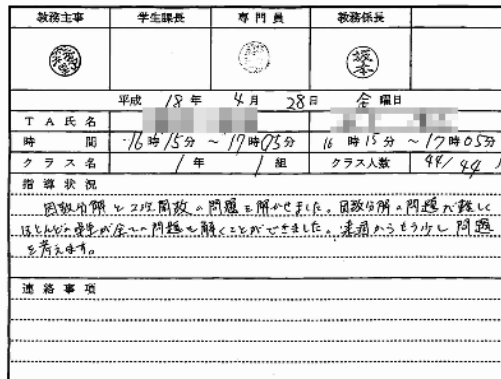 教務主事 学生課長 専門員 教務係長
坂本
平成 18年 4月 28日 金曜日
TA氏名
時間 16時15分 ～ 17時05分 16時15分 ～ 17時05分
クラス名 1年 1組 クラス人数 44/44
指導状況
因数分解と2次関数の問題を解かせました。因数分解の問題が難しく
ほとんどの学生が全ての問題を解くことができました。来週からもう少し問題
を考えます。
連絡事項